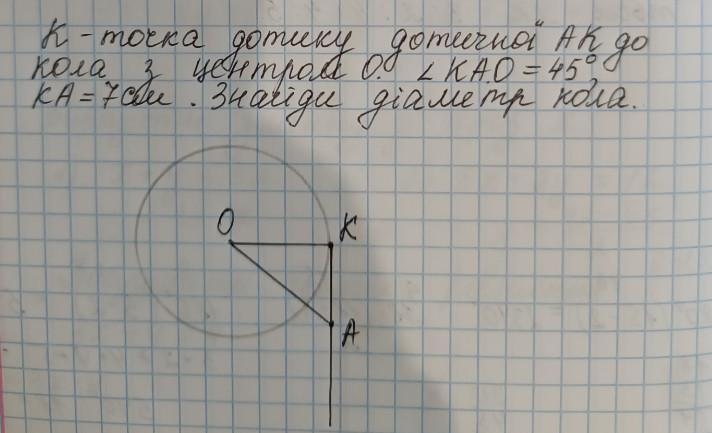 К - точка дотику дотичної АК до
кола з центром О. ∠КАО = 45°,
КА = 7см. Знайди діаметр кола.
О
К
А